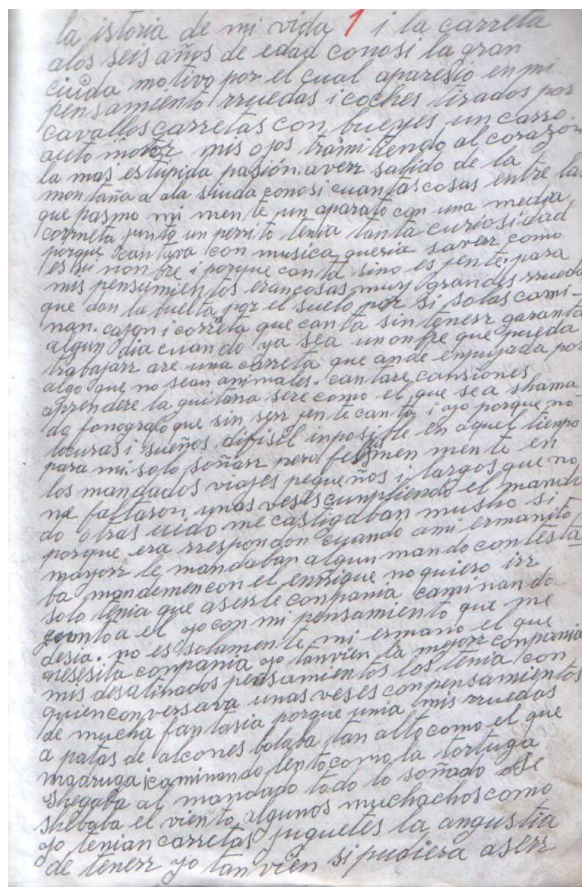 la istoria de mi vida 1 i la carreta
alos seis años de edad conosi la gran
ciuda motivo por el cual aparesio en mi
pensamiento rruedas i coches tirados por
cavallos carretas con bueyes un carro
auto motor mis ojos tramitiendo al corazon
la mas estupida pasion. averr salido de la
montaña a ala siuda conosi cuantas cosas entre las
que pasmo mi mente un aparato con una media
corneta junto un perrito tenia tanta curiosidad
porque cantava con musica queria saverr como
es su nonbre i porque canta sino es jente. para
mis pensamientos eran cosas muy grandes rrueda
que dan la buelta por el suelo por si solas cami-
nan. cajon i corneta que canta sin tenerr garganta
algun dia cuando ya sea un onbre que pueda
trabajarr are una carreta que ande enpujada por
algo que no sean animales. cantare cansiones
aprendere la guitarra sere como el que sea shama
do fonografo que sin serr jente canta i yo porque no-
locuras i sueños difisil inposible en aquel tienpo
para mi solo soñarr pero felismen mente en
los mandados viajes pequeños i largos que no
me faltaron unas veses cunpliendo el manda
do otras uido me castigaban musho si
porque era rrespondon cuando ami ermanito
mayorr le mandaban algun mando contesta
ba mandemen con el enrrique no quiero irr
solo tenia que aserrle conpania caminando
junto a el yo con mi pensamiento que me
desia. no es solamente mi ermano el que
nesesita conpania yo tanvien la mejorr conpania
mis desatinados pensamientos los tenia con
quien conversava unas veses con pensamientos
de mucha fantasia porque unia mis rruedas
a patas de alcones bolaba tan alto como el que
madruga i caminando lento como la tortuga
shegaba al mandado todo lo soñado se
shebaba el viento, algunos muchachos como
yo tenian carretas juguetes la angustia
de tenerr yo tanvien si pudiera aserr